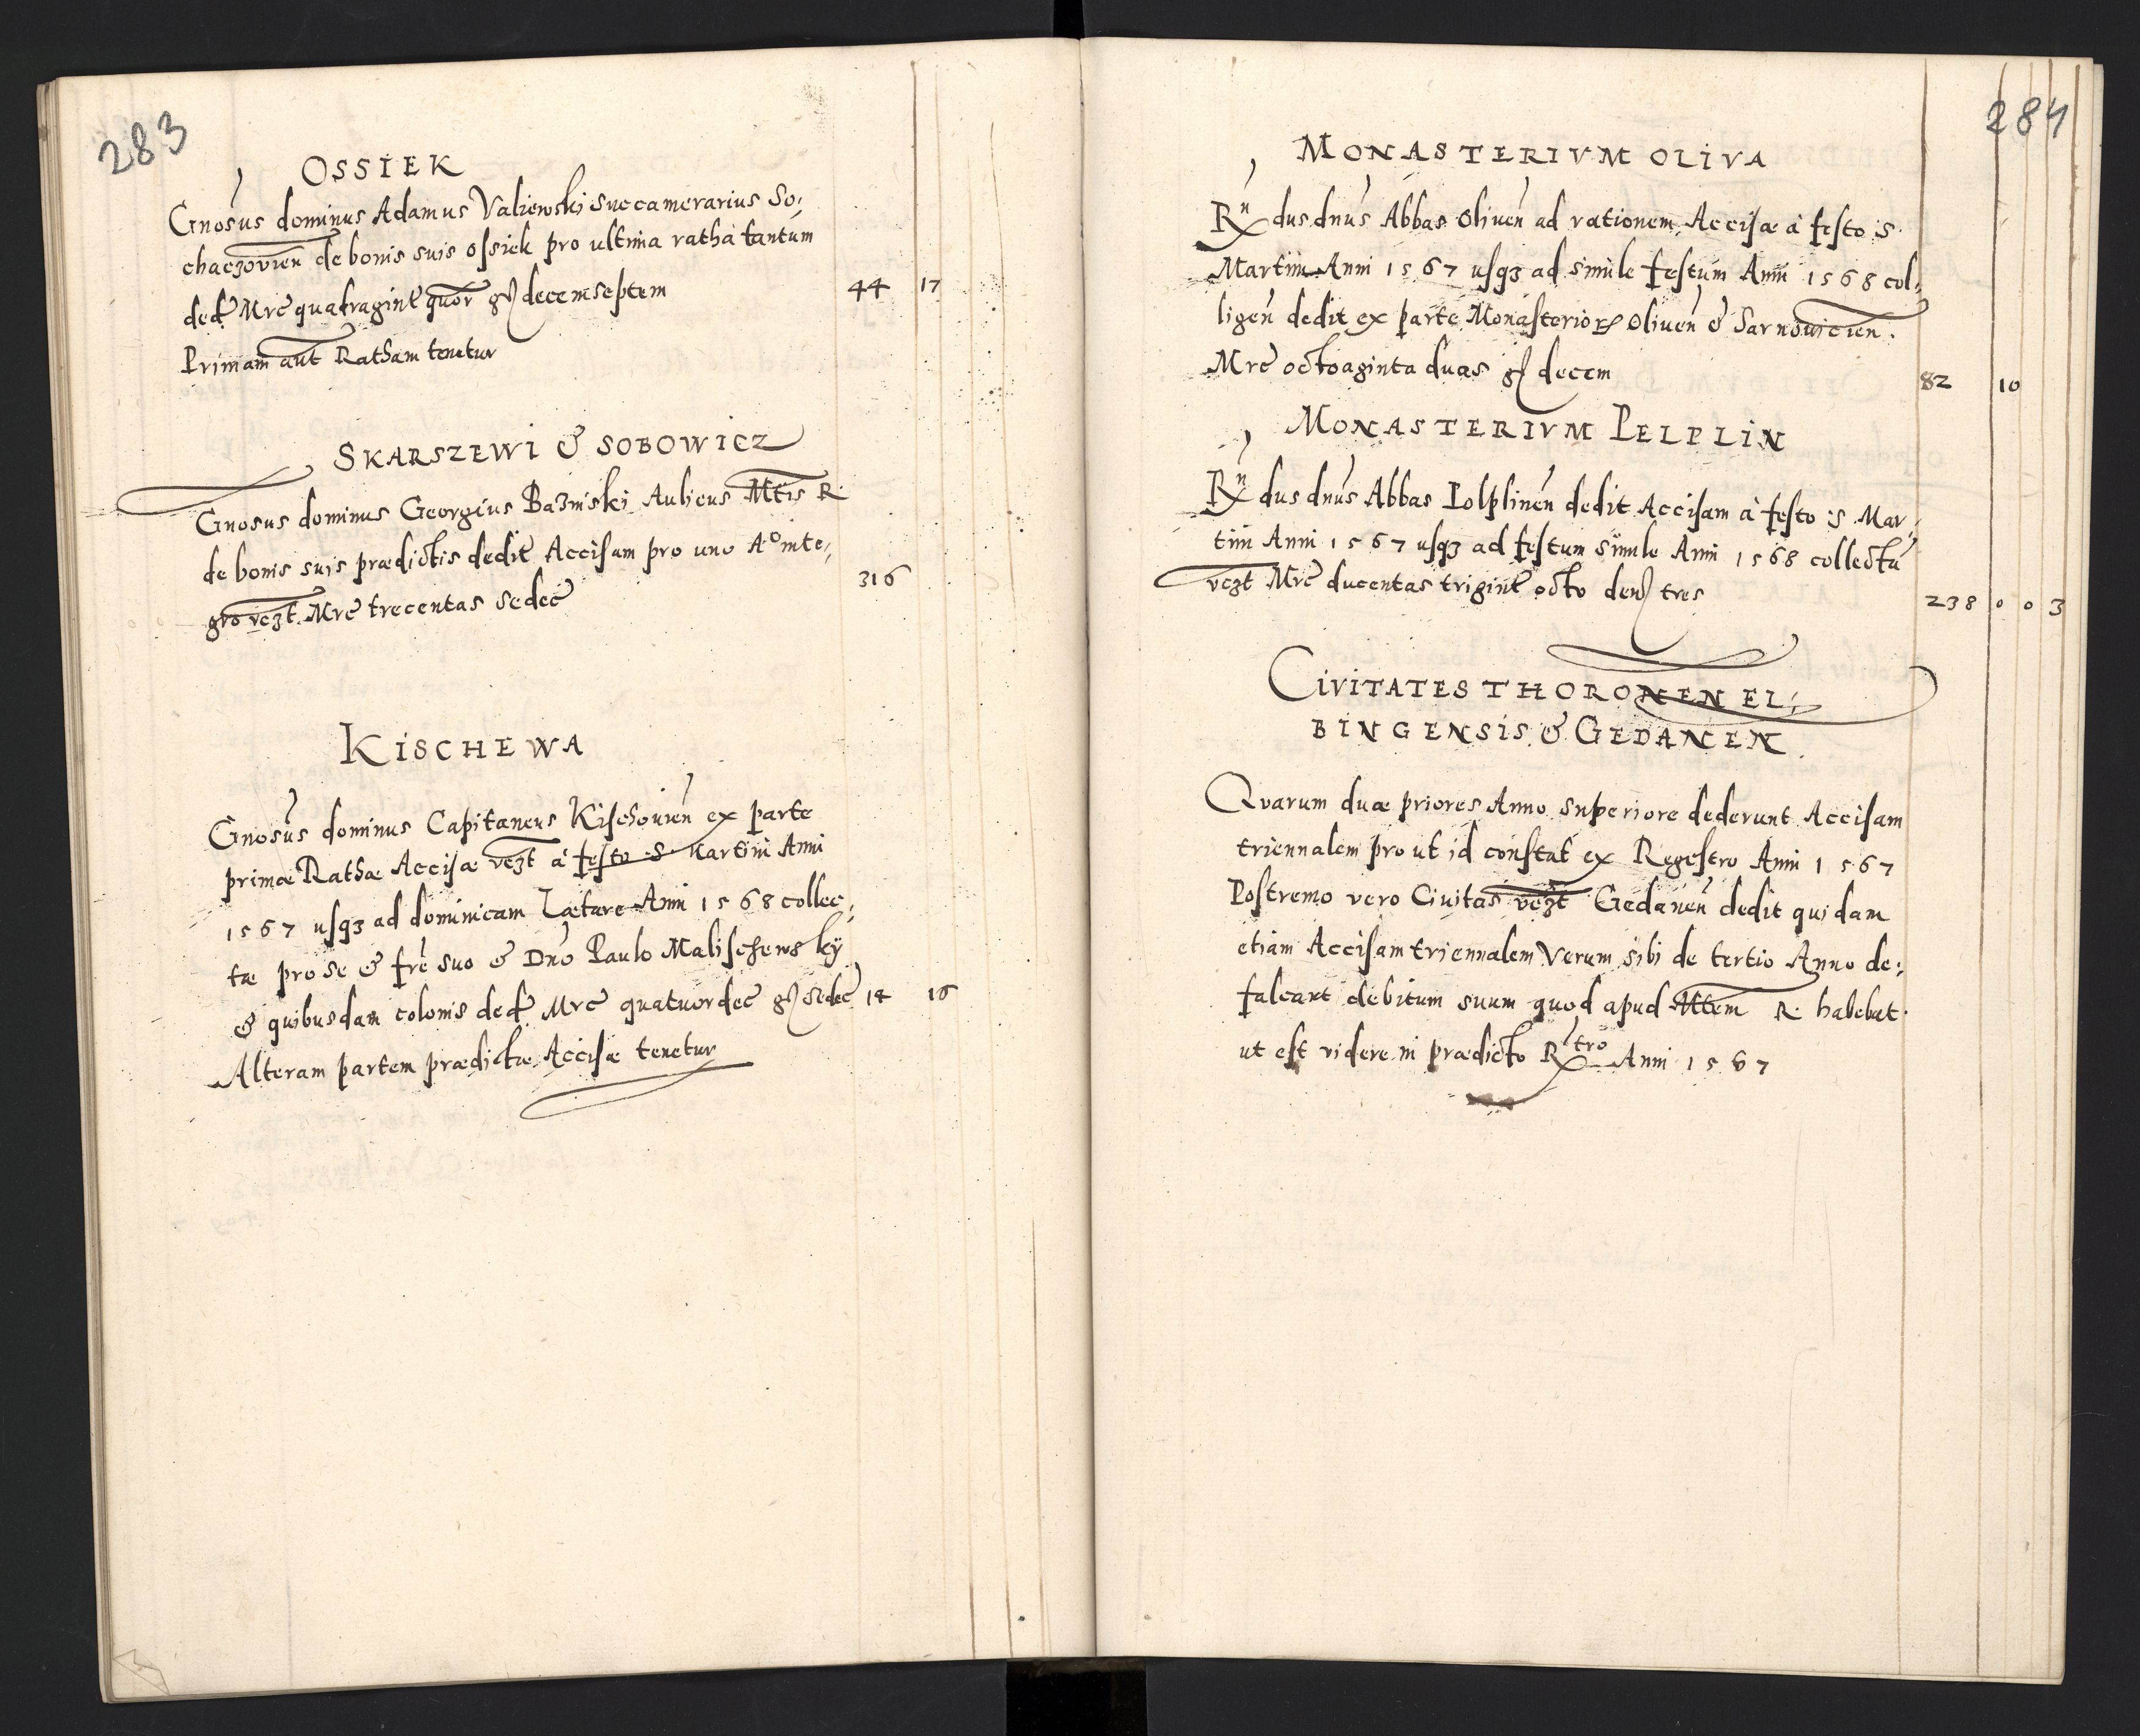 283
OSSIEK
Gnosus dominus Adamus Valiewski succamerarius So:
chaczovien de bonis suis ossiek pro ultima ratha tantum
ded Mrc quatragint quor gs decemseptem 44 17
Primam aut Ratham tenetur
SKARSZEWI & SOBOWICZ
Gnosus dominus Georgius Bazinski Aulicus Mtis R
de bonis suis prædictis dedit Accisam pro uno Ao inte:
gro vczt Mrc trecentas sedec 316
KISCHEWA
Gnosus dominus Capitaneus Kischovien ex parte
primæ Rathæ Accisæ vczt à festo S Martini Anni
1567 usq3 ad dominicam Lætare Anni 1568 collec:
tæ pro se & fre suo & Dno Paulo Malischewsky
& quibusdam colonis ded Mrc quatuordec gs sedec 14 16
Alteram partem prædictæ Accisæ tenetur
284
MONASTERIVM OLIVA
Rndus dnus Abbas Oliven ad rationem Accisæ à festo S
Martini Anni 1567 usq3 ad simile festum Anni 1568 col:
ligen dedit ex parte Monasterior Oliven & Sarnowicien.
Mrc octoaginta duas gs decem 82 10
MONASTERIVM PELPLIN
Rndus dnus Abbas Polplinen dedit Accisam à festo S Mar:
tini Anni 1567 usq3 ad festum simile Anni 1568 collectā
vczt Mrc ducentas trigint octo den tres 238 0 0 3
CIVITATES THORONEN EL:
BINGENSIS & GEDANEN
Qvarum duæ priores Anno superiore dederunt Accisam
triennalem prout id constat ex Regestro Anni 1567
Postremo vero Civitas vczt Gedanen dedit quidam
etiam Accisam triennalem Verum sibi de tertio Anno de:
falcavt debitum suum quod apud Mtem R habebat
ut est videre in prædicto Rtro Anni 1567